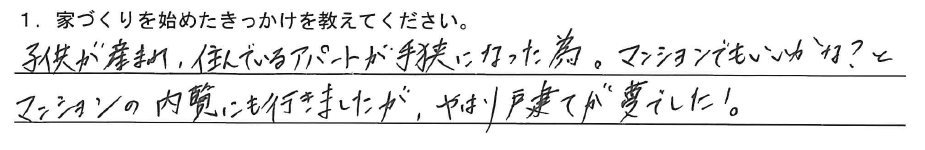 1. 家づくりを始めたきっかけを教えてください。
子供が産まれ、住んでいるアパートが手狭になった為。マンションでもいいかな？と
マンションの内覧にも行きましたが、やはり戸建てが夢でした！。